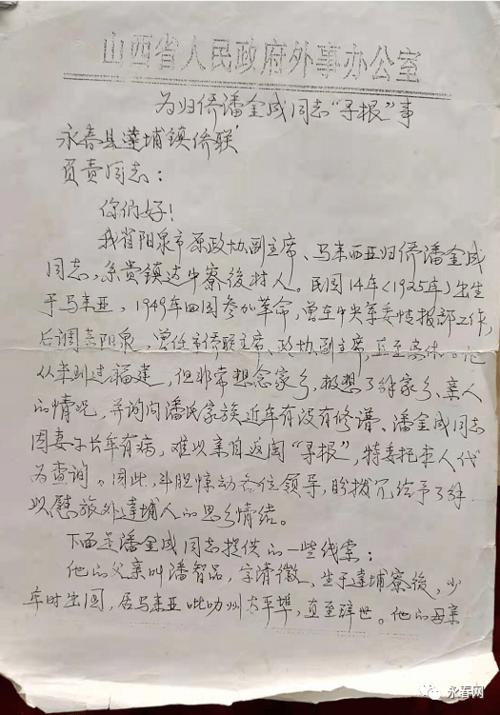 山西省人民政府外事办公室
为归侨潘金成同志“寻根”事
永春县蓬埔镇侨联
负责同志：
你们好！
我省阳泉市原政协副主席、马来西亚归侨潘金成
同志，系贵镇达中寮後村人。民国14年（1925年）出生
于马来亚，1949年回国参加革命，曾在中央军委情报部工作，
后调来阳泉，曾任市侨联主席、政协副主席，直至离休。他
从未到过福建，但非常想念家乡，极想了解家乡、亲人
的情况，并询问潘氏家族近年有没有修谱、潘金成同志
因妻子长年有病，难以亲自返闽“寻根”，特委托本人代
为查询。因此，斗胆惊动各位领导，盼拨冗给予了解
以慰旅外蓬埔人的思乡情绪。
下面是潘金成同志提供的一些线索：
他的父亲叫潘智品，字清徽、生于蓬埔寮後，少
年时出国，居马来亚吡叻州太平埠，直至辞世。他的母亲
永春网